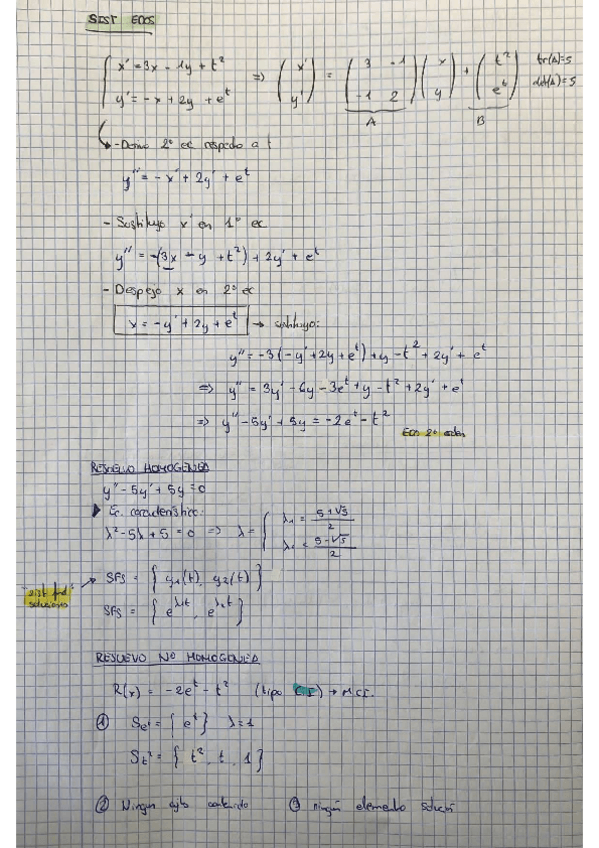 SIST EDOS
{ x' = 3x - 1y + t²
y' = -x + 2y + e^t
=> (x' y') = (3 -1 -1 2) (x y) + (t² e^t)
tr(A)=5
det(A)=5
A B
- Derivo 2º ec respecto a t
y'' = -x' + 2y' + e^t
- Sustituyo x' en 1º ec
y'' = -(3x - y + t²) + 2y' + e^t
- Despejo x en 2º ec
x = -y' + 2y + e^t → sustituyo:
y'' = -3(-y' + 2y + e^t) + y - t² + 2y' + e^t
=> y'' = 3y' - 6y - 3e^t + y - t² + 2y' + e^t
=> y'' - 5y' + 5y = -2e^t - t²
EDO 2º orden
RESUELVO HOMOGENEA
y'' - 5y' + 5y = 0
Ec. característica:
λ² - 5λ + 5 = 0 => λ = { λ₁ = (5+√5)/2
λ₂ = (5-√5)/2
SFS = { y₁(t), y₂(t) }
"sist fund soluciones
SFS = { e^λ₁t, e^λ₂t }
RESUELVO NO HOMOGENEA
R(x) = -2e^t - t² (tipo C.I) → MCI.
① S_e^t = { e^t } λ=1
S_t² = { t², t, 1 }
② Ningun cjto contenido ③ ningún elemento soluci